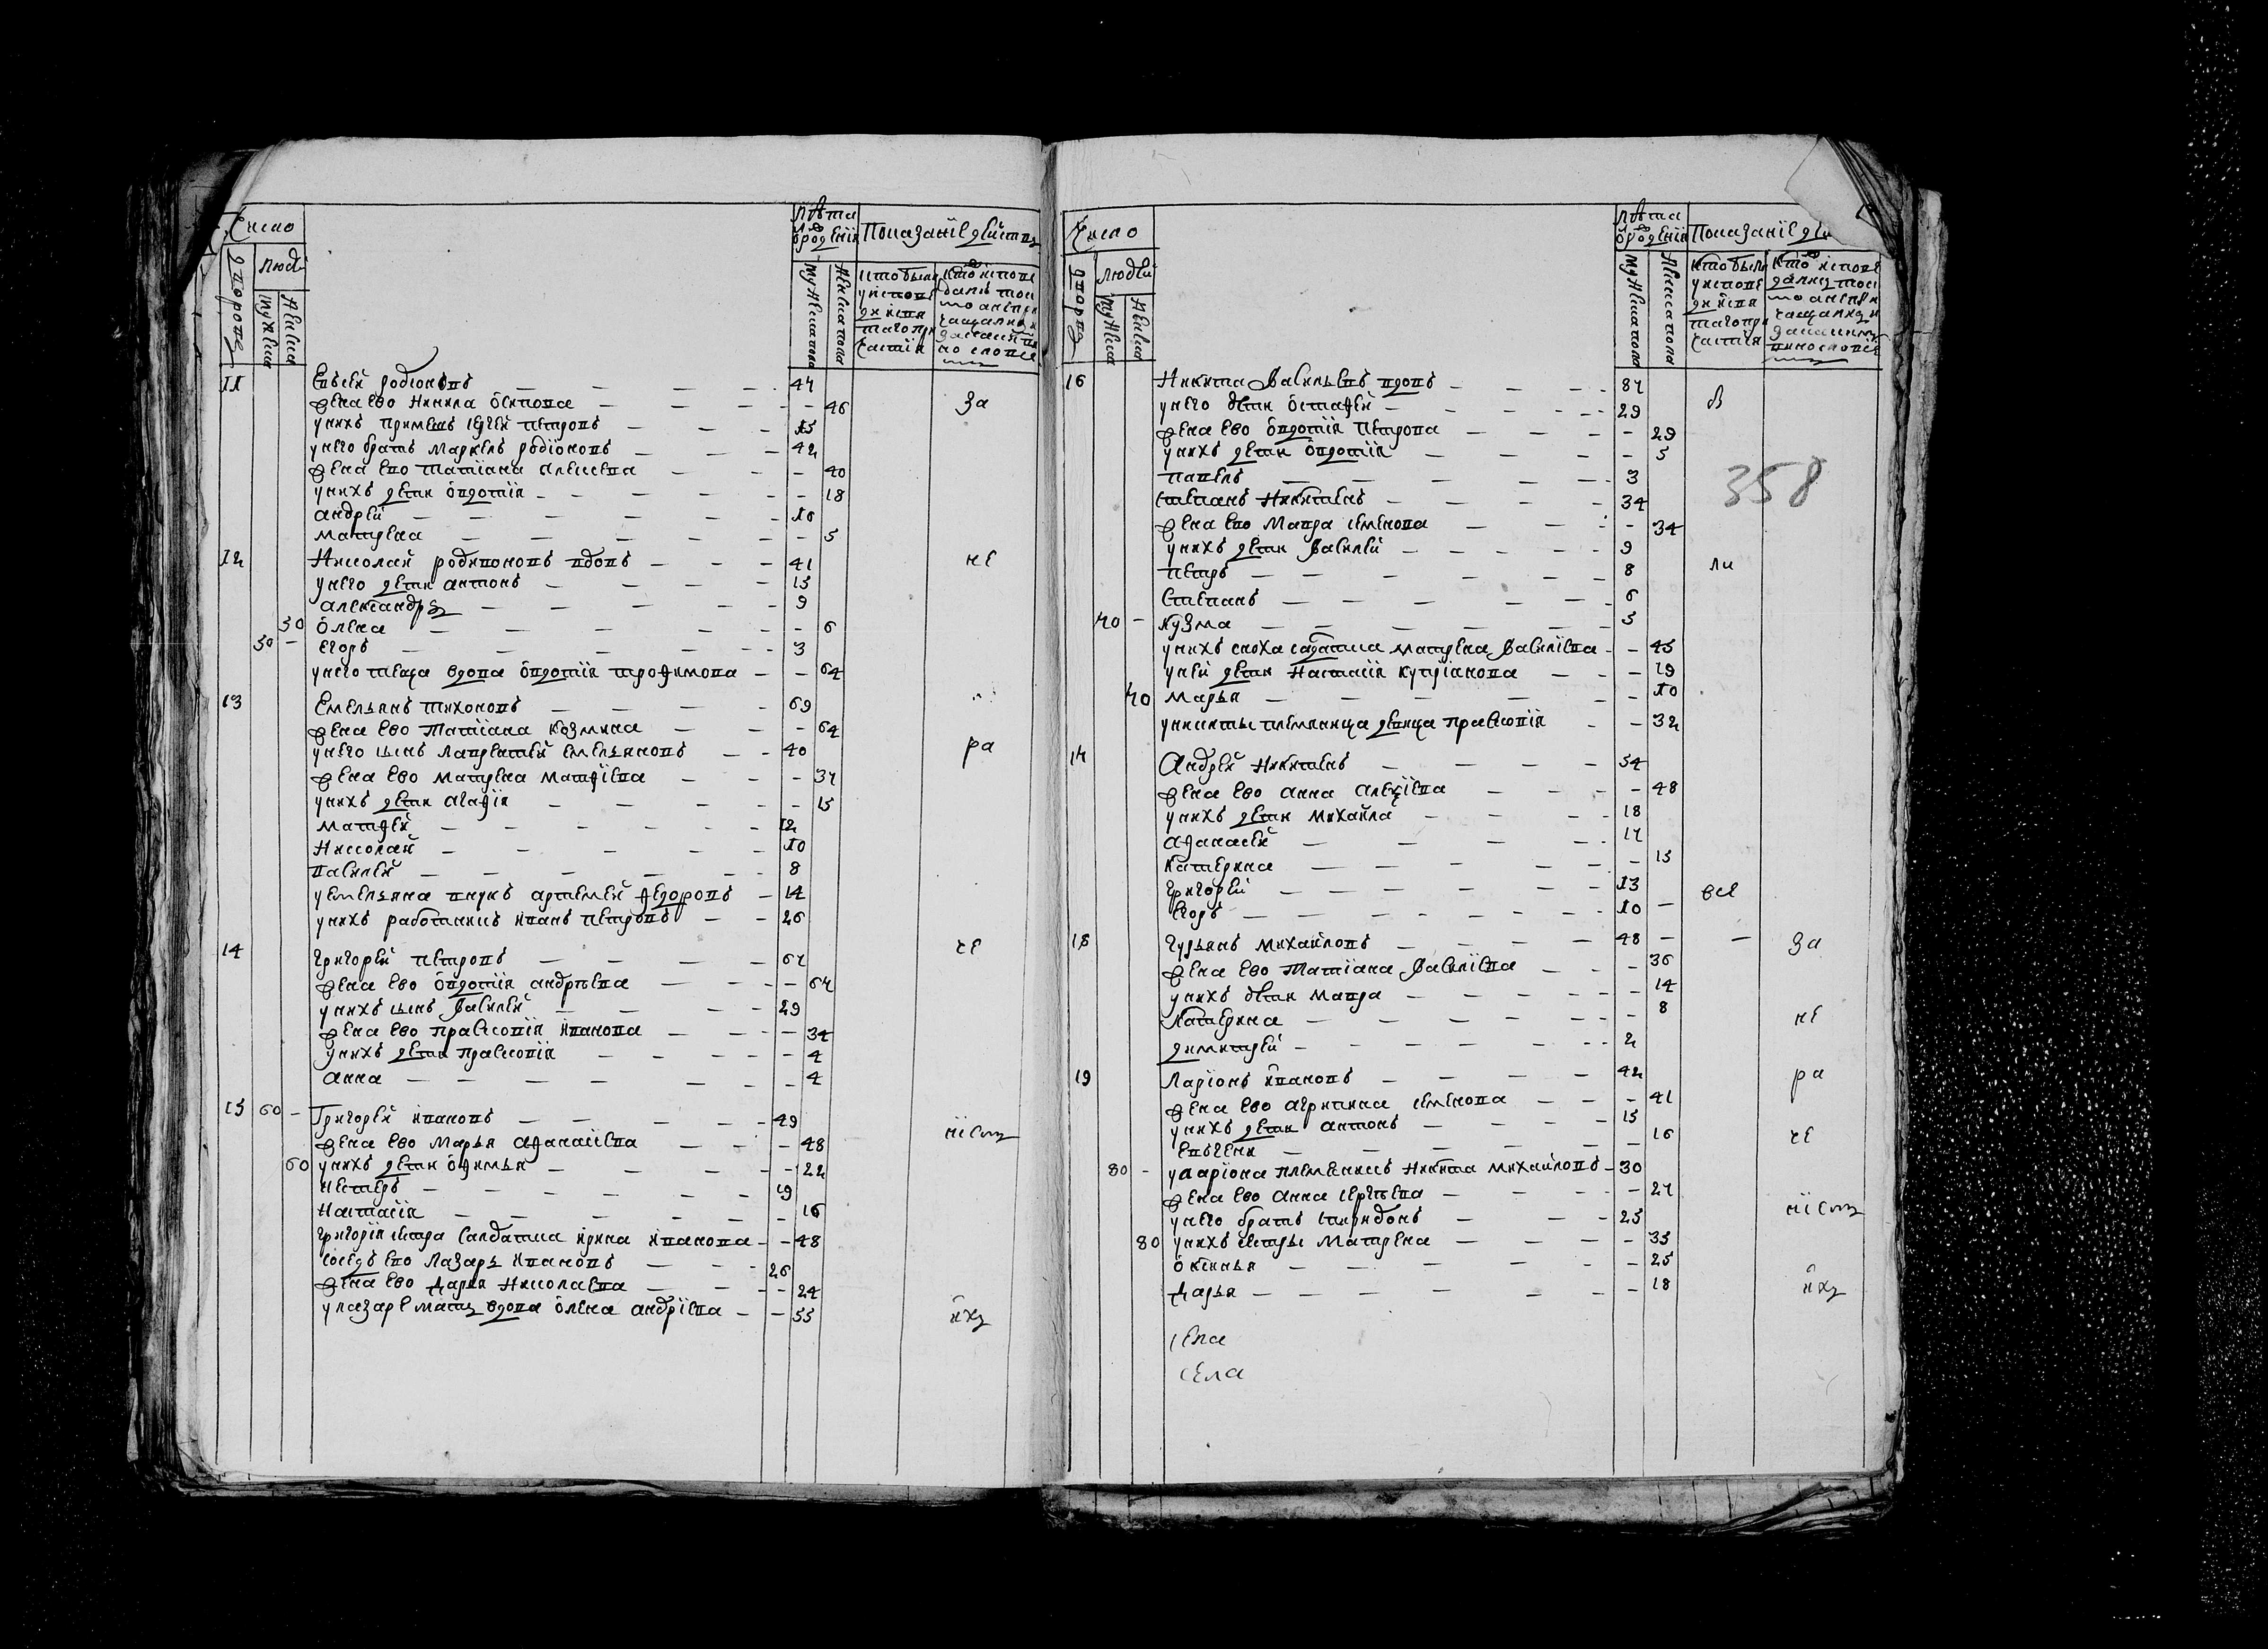 Число
дворовъ
людей
мужеска
женска
лѣта ѿ рожденїя
мужеска пола
женска пола
Показанїе действъ
кто были у исповеди и святаго причастїя
11 Евсей родіоновъ — 47
жена ево Ненила осипова — 46 за
у нихъ примышъ сергей петровъ — 15
у него братъ маркелъ родіоновъ — 42
жена ево татїана алексева — 40
у нихъ дети овдотїя — 18
андрей — 16
матрена — 5
12 Николай родивоновъ вдовъ — 41 не
у него дети антонъ — 15
александръ — 9
50 олена — 6
50 — егоръ — 3
у него теща вдова овдотїя трофимова — 64
13 Емельянъ тихоновъ — 69
жена ево татїана козмина — 64
у него сынъ лаврентей емельяновъ — 40 ра
жена ево матрена матфїева — 37
у нихъ дети агафїя — 15
матфей — 12
Николай — 10
василей — 8
у емельяна внукъ артемей федоровъ — 14
у нихъ работникъ иванъ петровъ — 26
14 григорей петровъ — 67 че
жена ево овдотїя андреева — 67
у нихъ сынъ василей — 29
жена ево прасковїя иванова — 34
у нихъ дети прасковїя — 4
анна — 4
15 60 — Григорей ивановъ — 49
жена ево марья афанасїева — 48 нїемъ
60 у нихъ дети офимья — 22
нестеръ — 19
настасїя — 16
григорїя сестра салдатка ирина иванова — 48
соседъ ево лазарь ивановъ — 26
жена ево дарья николаева — 24
у лазаря мать вдова олена андрїева — 55 ихъ
Число
дворовъ
людей
мужеска
женска
лѣта ѿ рожденїя
мужеска пола
женска пола
Показанїе
кто были у исповеди и святаго причастїя
358
16 Никита васильевъ вдовъ — 87 бы
у него дети остафей — 29
жена ево овдотїя петрова — 29
у нихъ дети овдотїя — 5
павелъ — 3
степанъ никитинъ — 34
жена ево мавра семенова — 34
у нихъ дети василей — 9
петръ — 8 ли
степанъ — 6
70 — кузма — 5
у нихъ сноха салдатка матрена василїева — 45
у ней дети настасїя купрїанова — 19
70 марья — 10
у никиты племяница девица прасковїя — 32
17 Андрей никитинъ — 54
жена ево анна алексїева — 48
у нихъ дети михайла — 18
афанасей — 17
катерина — 15
григорей — 13 все
егоръ — 10 —
18 гурьянъ михайловъ — 48 — — за
жена ево татїана василїева — 36
у нихъ дети мавра — 14
катерина — 8 не
димитрей — 2
19 ларїонъ ивановъ — 42 ра
жена ево агрипина семенова — 41
у нихъ дети антонъ — 15
евгенїя — 16 че
80 — у ларїона племеникъ никита михайловъ — 30
жена ево анна сергеева — 27
у него братъ спиридонъ — 25 нїемъ
80 у нихъ сестры матрена — 35
оксинья — 25
дарья — 18 ихъ
села
села